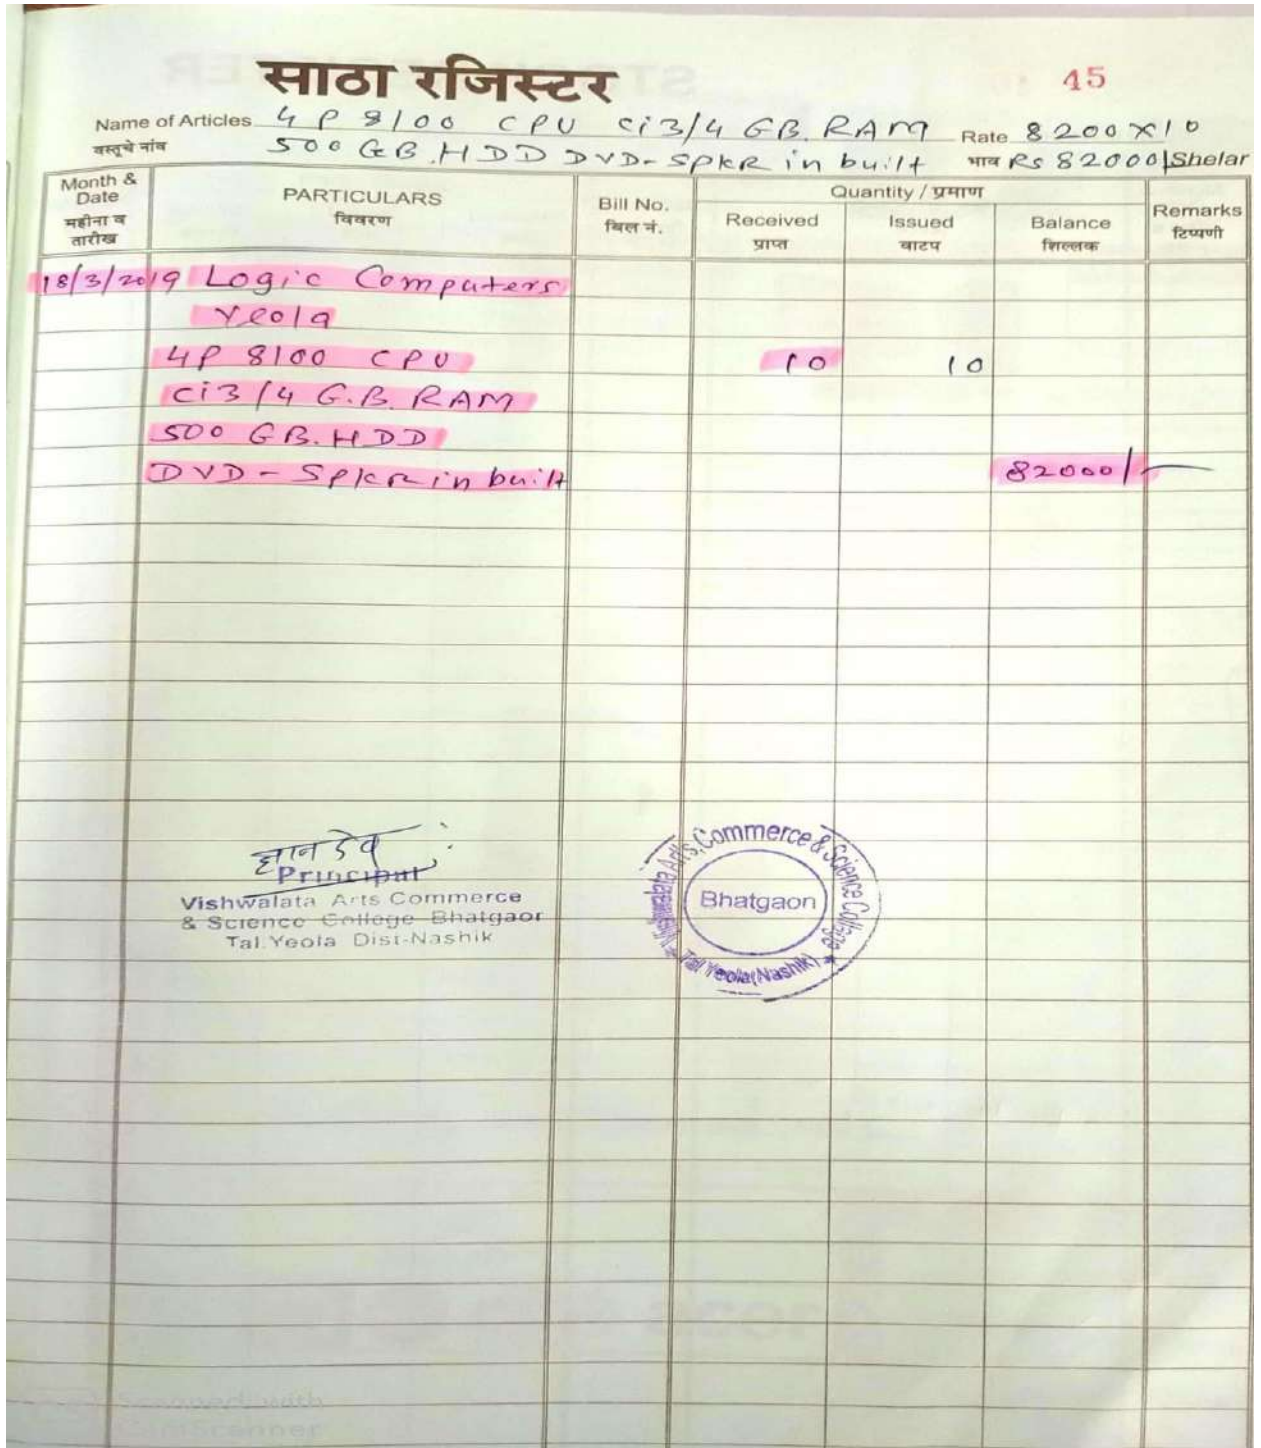 साठा रजिस्टर
45
Name of Articles 4P 8100 CPU Ci3/4 GB. RAM Rate 8200X10
वस्तूचे नांव 500 GB. HDD DVD-SPKR in built भाव Rs 82000 Shelar
Month & Date PARTICULARS Bill No. Quantity / प्रमाण Remarks
महीना व तारीख विवरण बिल नं. Received Issued Balance टिप्पणी
प्राप्त वाटप शिल्लक
18/3/2019 Logic Computers
Yeola
4P 8100 CPU 10 10
Ci3/4 G.B. RAM
500 GB. HDD
DVD - Spkr in built 82000/-
ज्ञानदेव
Principal
Vishwalata Arts Commerce
& Science College Bhatgaon
Tal. Yeola Dist-Nashik
Vishwalata Arts, Commerce & Science College
Bhatgaon
Tal. Yeola (Nashik)
Scanned with
CamScanner